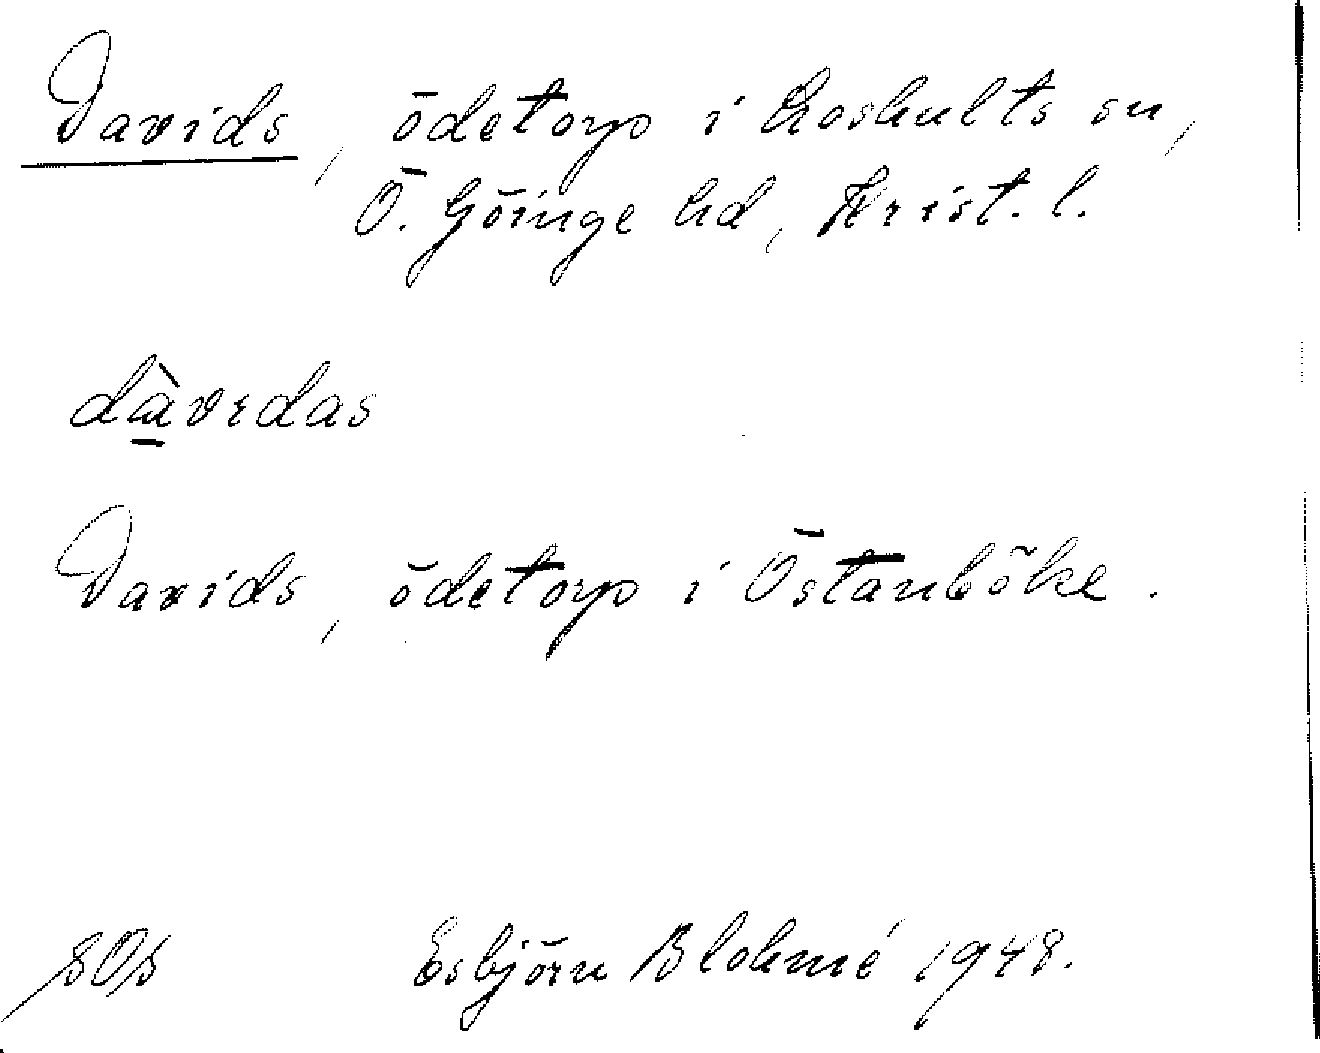 Davids, ödetorp i Loshults sn,
Ö. Göinge hd, Krist. l.
dàvıdas
Davids, ödetorp i Östanböke.
SOS Esbjörn Blohmé 1948.